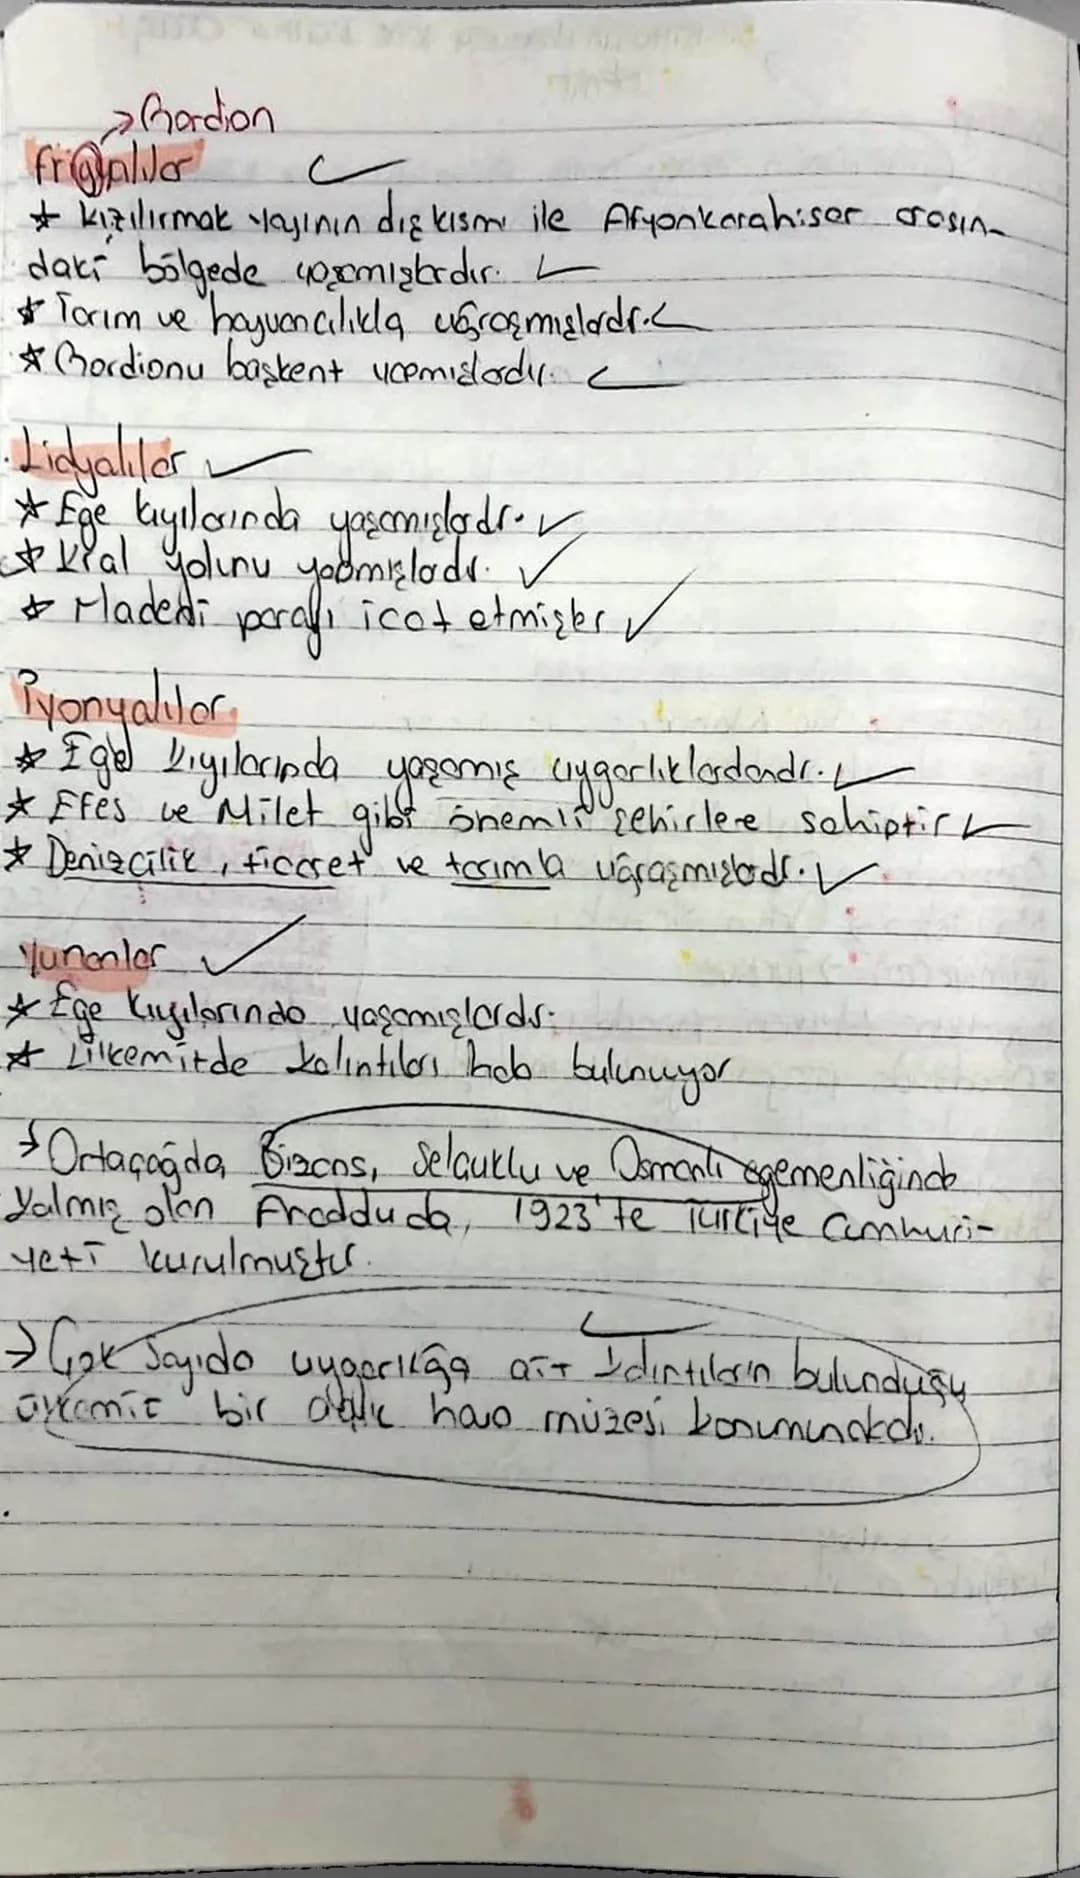 → Gordion
Frigyalılar
* Kızılırmak yayının dış kısmı ile Afyonkarahisar arasın-
daki bölgede yaşamışlardır.
* Tarım ve hayvancılıkla uğraşmışlardır.
* Gordionu başkent yapmışlardır.
Lidyalılar
* Ege kıyılarında yaşamışlardır.
* Kral yolunu yapmışladır.
* Madeni parayı icat etmişler
İyonyalılar
* Ege kıyılarında yaşamış uygarlıklardandır.
* Efes ve Milet gibi önemli şehirlere sahiptir
* Denizcilik, ticaret ve tarımla uğraşmışladır.
Yunanlar
* Ege kıyılarında yaşamışlardır.
* Ülkemizde kalıntıları hala bulunuyor
→ Ortaçağda Bizans, Selçuklu ve Osmanlı egemenliğinde
kalmış olan Anadoluda, 1923'te Türkiye Cumhuri-
yeti kurulmuştur.
→ Çok Sayıda uygarlığa ait kalıntıların bulunduğu
ülkemiz bir açık hava müzesi konumundadır.